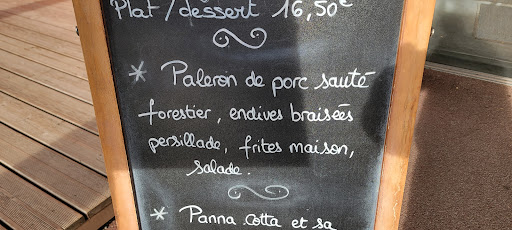 Plat/dessert 16,50€
* Paleron de porc sauté
forestier, endives braisées
persillade, frites maison,
salade.
* Panna cotta et sa